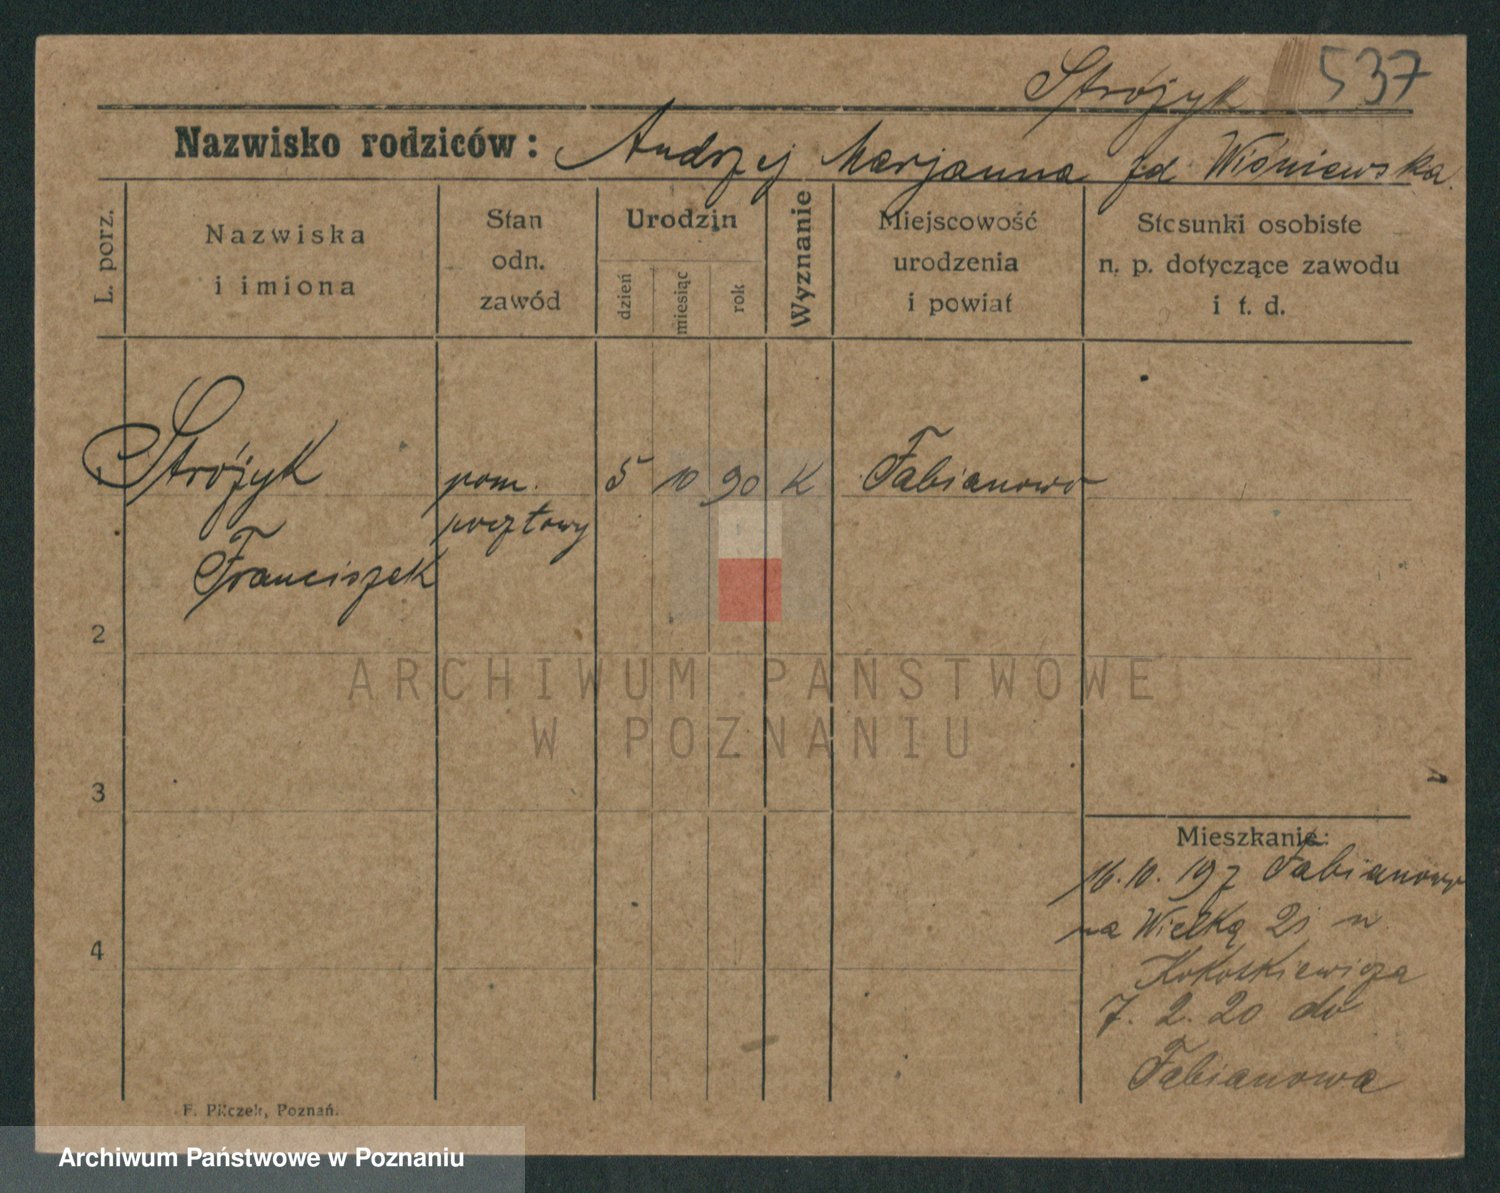 Strójyk 537
Nazwisko rodziców: Andrzej Marjanna Wiśniewska
L. porz.
Nazwiska
i imiona
Stan
odn.
zawód
Urodzin
dzień
miesiąc
rok
Wyznanie
Miejscowość
urodzenia
i powiat
Stosunki osobiste
n. p. dotyczące zawodu
i t. d.
Strójyk
Franciszek
pom.
pocztowy
5 10 90 K Fabianowo
2
3
4
Mieszkanie:
16.10.19 z Fabianowo
na Wielką 21 u
7. 2. 20 do
Fabianowa
F. Pilczek, Poznań.
ARCHIWUM PAŃSTWOWE
W POZNANIU
Archiwum Państwowe w Poznaniu